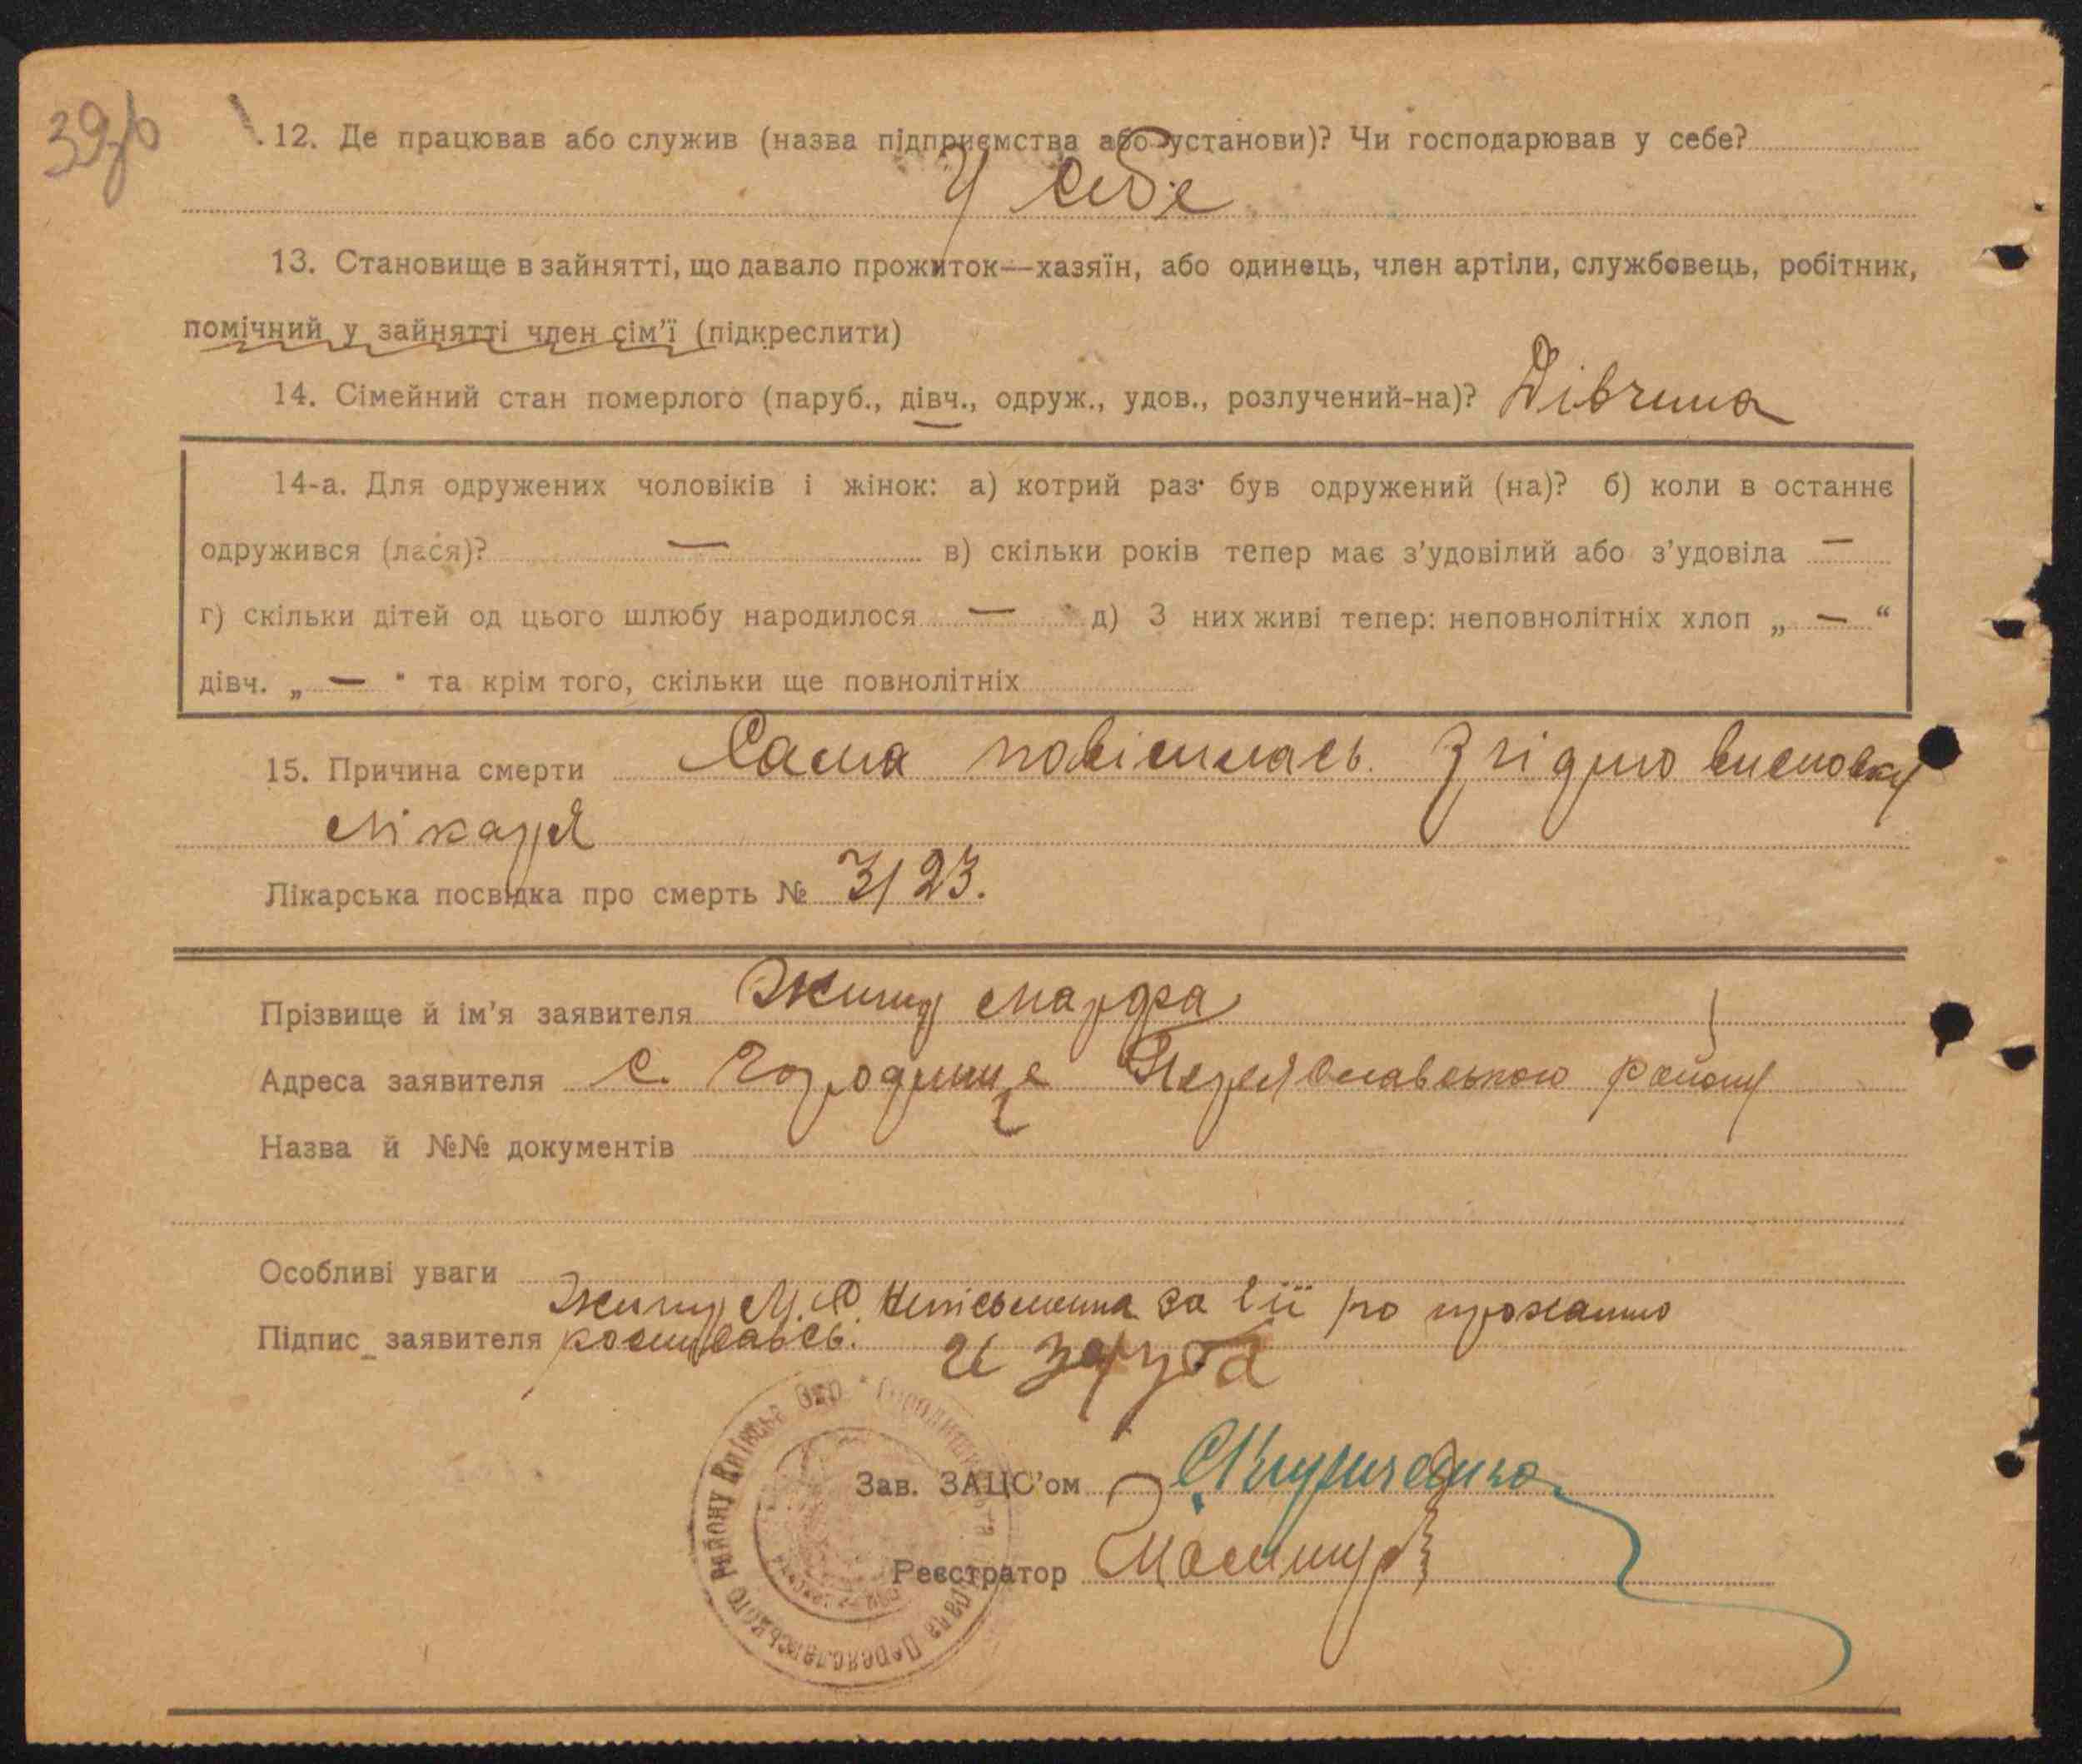 39зв
12. Де працював або служив (назва підприємства або установи)? Чи господарював у себе?
У себе
13. Становище в зайнятті, що давало прожиток—хазяїн, або одинець, член артіли, службовець, робітник,
помічний у зайнятті член сім'ї (підкреслити)
14. Сімейний стан померлого (паруб., дівч., одруж., удов., розлучений-на)? Дівчина
14-а. Для одружених чоловіків і жінок: а) котрий раз був одружений (на)? б) коли в останнє
одружився (лася)? — в) скільки років тепер має з'удовілий або з'удовіла —
г) скільки дітей од цього шлюбу народилося — д) З них живі тепер: неповнолітніх хлоп „ — “
дівч. „ — " та крім того, скільки ще повнолітніх
15. Причина смерти Сама повісилась. Згідно висновку
лікаря
Лікарська посвідка про смерть № 3/23.
Прізвище й ім'я заявителя Марфа
Адреса заявителя с. Городище Переяславського району
Назва й №№ документів
Особливі уваги
М. неписьменна за її по проханню
Підпис заявителя росписавсь.
Зав. ЗАЦС'ом
Реєстратор
Переяславського Району Київська